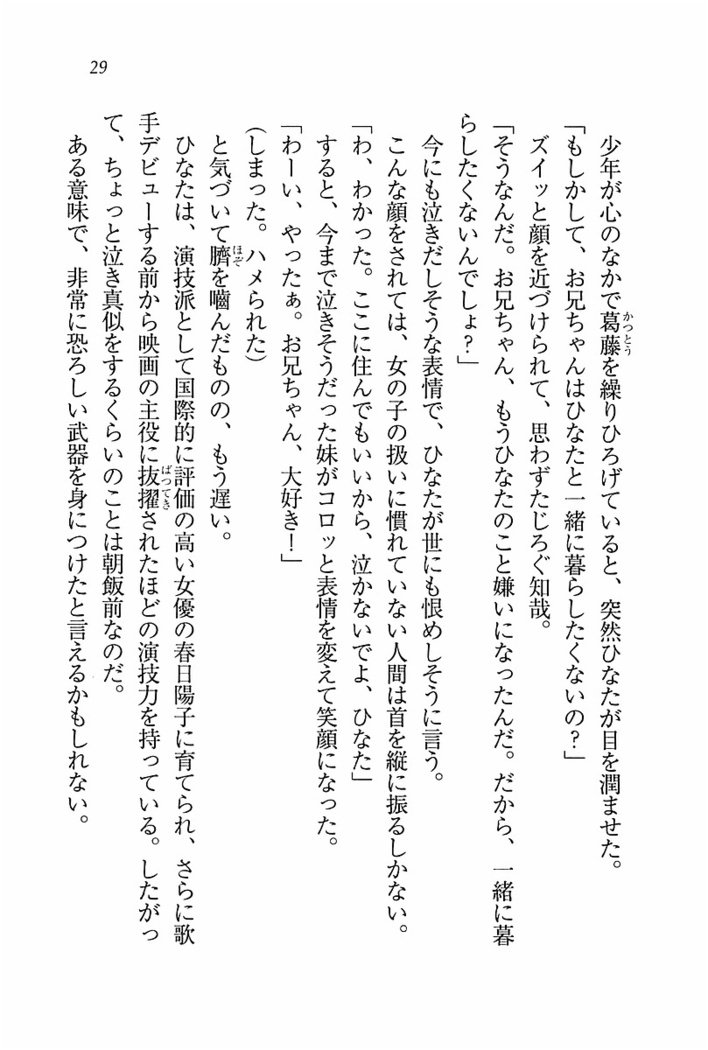 29
少年が心のなかで葛藤を繰りひろげていると、突然ひなたが目を潤ませた。
かっとう
「もしかして、お兄ちゃんはひなたと一緒に暮らしたくないの？」
ズイッと顔を近づけられて、思わずたじろぐ知哉。
「そうなんだ。お兄ちゃん、もうひなたのこと嫌いになったんだ。だから、一緒に暮
らしたくないんでしょ？」
今にも泣きだしそうな表情で、ひなたが世にも恨めしそうに言う。
こんな顔をされては、女の子の扱いに慣れていない人間は首を縦に振るしかない。
「わ、わかった。ここに住んでもいいから、泣かないでよ、ひなた」
すると、今まで泣きそうだった妹がコロッと表情を変えて笑顔になった。
「わーい、やったぁ。お兄ちゃん、大好き！」
(しまった。ハメられた)
と気づいて臍を嚙んだものの、もう遅い。
ほぞ
ひなたは、演技派として国際的に評価の高い女優の春日陽子に育てられ、さらに歌
手デビューする前から映画の主役に抜擢されたほどの演技力を持っている。したがっ
ばってき
て、ちょっと泣き真似をするくらいのことは朝飯前なのだ。
ある意味で、非常に恐ろしい武器を身につけたと言えるかもしれない。